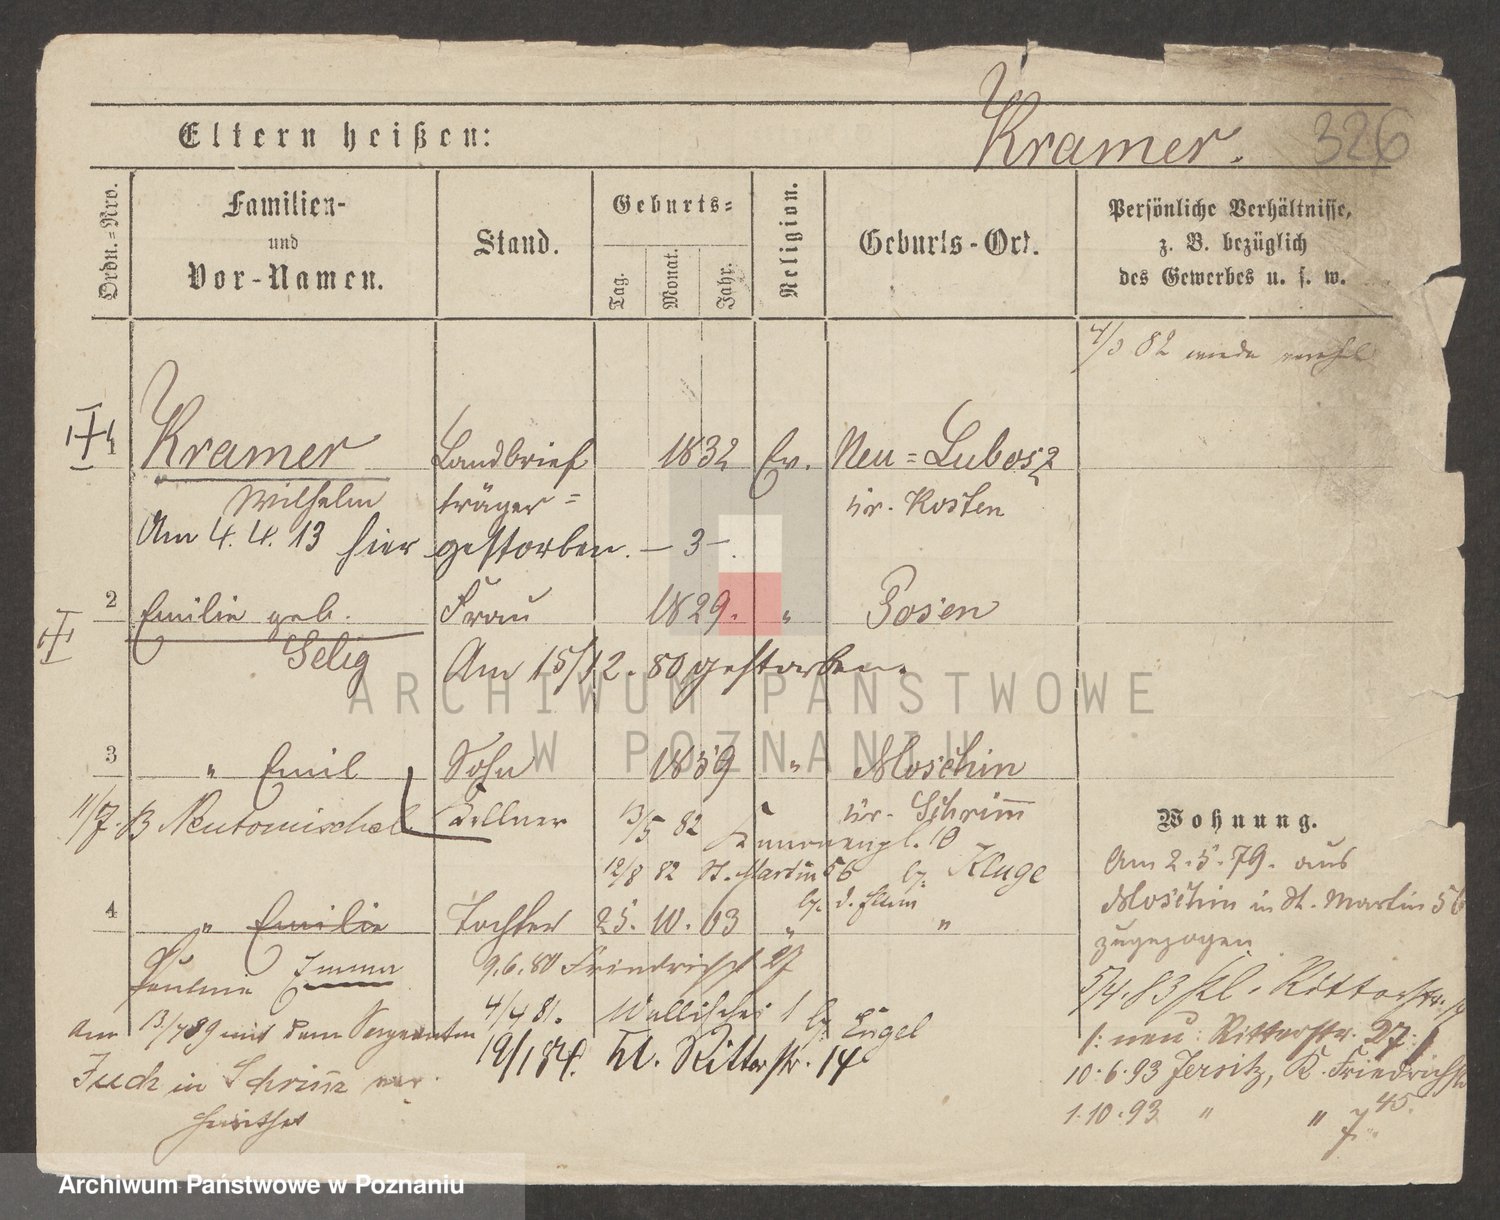 Eltern heißen:
Kramer.
326
Ordn.=Nro.
Familien-
und
Vor-Namen.
Stand.
Geburts=
Tag.
Monat.
Jahr.
Religion.
Geburts-Ort.
Persönliche Verhältnisse,
z. B. bezüglich
des Gewerbes u. s. w.
4/3 82
Kramer Landbrief 1832 Ev. Neu=Lubosz
Wilhelm träger= Kr. Kosten
Am 4. 4. 13 hier gestorben. -3-.
2 Emilie geb. Frau 1829. " Posen
Selig Am 15/12. 80 gestorben.
3 " Emil Sohn 1859 " Moschin
11/7. B Neutomischel Kellner 13/5 82 10 Kr. Schrimm
12/8 82 St. Martin 56 bei Kluge
4 " Emilie Tochter 25. 10. 63 " "
Pauline Emma 9.6.80 Friedrichst 27
4/4 81. Wallischei 1 b. Engel
19/1 84. Kl. Ritterstr. 14
Am 13/7 89 mit dem Sergeanten
in Schrimm ver-
heirathet
Wohnung.
Am 2.5.79. aus
Moschin in St. Martin 56
zugezogen
5/4. 83 Kl. Ritterstr. 14
/: neu: Ritterstr. 27:/
10.6.93 Jersitz, K. Friedrichstr
45.
1.10.93 " " 7
ARCHIWUM PAŃSTWOWE
W POZNANIU
Archiwum Państwowe w Poznaniu